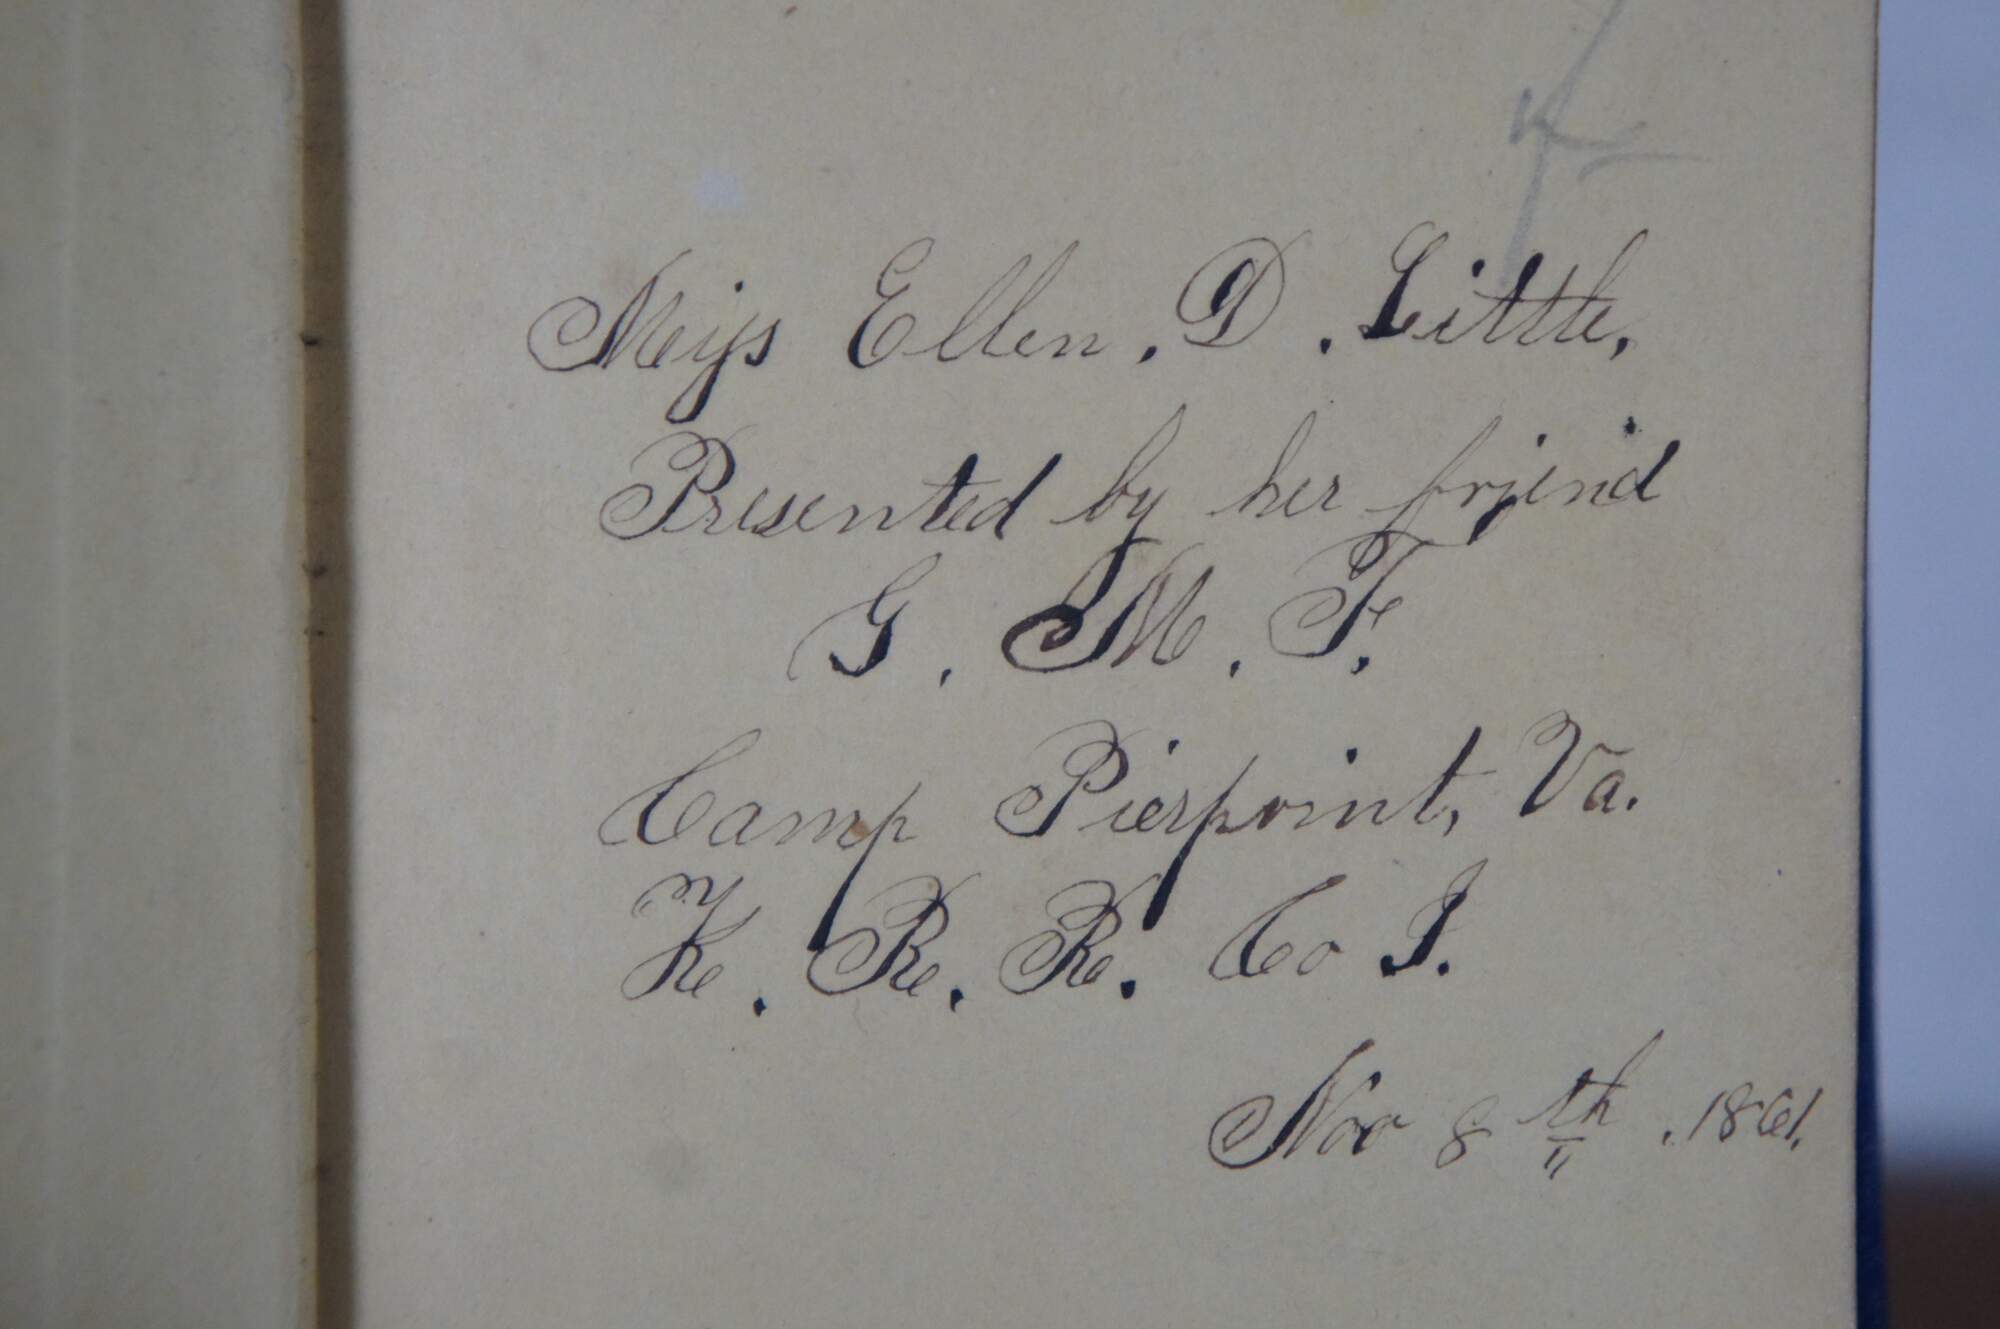 Miss Ellen. D. Little,
Presented by her friend
G. M. F.
Camp Pierpoint, Va.
K. R. R. Co I.
Nov 8th. 1861.